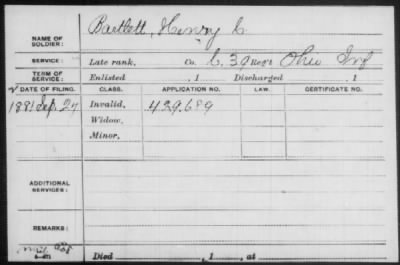 NAME OF SOLDIER: Bartlett, Henry C
SERVICE: Late rank, Co. C, 39 Reg't Ohio Inf
TERM OF SERVICE: Enlisted , 1 Discharged , 1
DATE OF FILING. CLASS. APPLICATION NO. LAW. CERTIFICATE NO.
1881 Sep. 27 Invalid, 429.689
Widow,
Minor,
ADDITIONAL SERVICES:
REMARKS:
Died , 1 , at